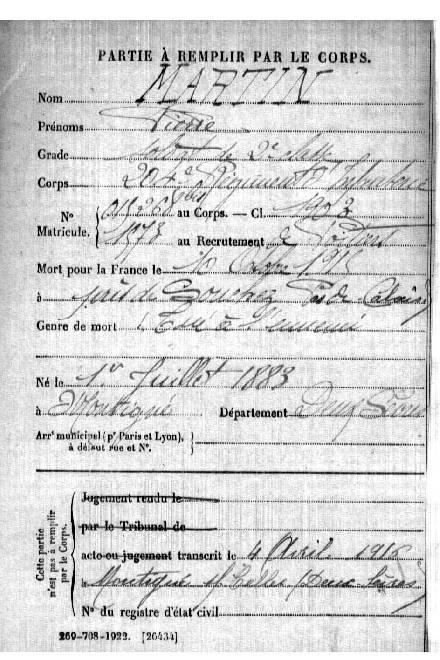 PARTIE À REMPLIR PAR LE CORPS.
Nom MARTIN
Prénoms Pierre
Grade soldat de 2e classe
Corps 204e Régiment d'Infanterie
N° Matricule. au Corps. — Cl. 1903
1073 au Recrutement de
Mort pour la France le 10 Octobre 1915
à près de Souchez Pas de Calais
Genre de mort Tué à l'ennemi
Né le 1er Juillet 1883
à Montigné Département Deux Sèvres
Arrt municipal (pr Paris et Lyon), à défaut rue et N°.
Cette partie n'est pas à remplir par le Corps.
Jugement rendu le
par le Tribunal de
acte ou jugement transcrit le 4 Avril 1916
à Montigné Celles (Deux Sèvres)
N° du registre d'état civil
269-708-1922. [26434]